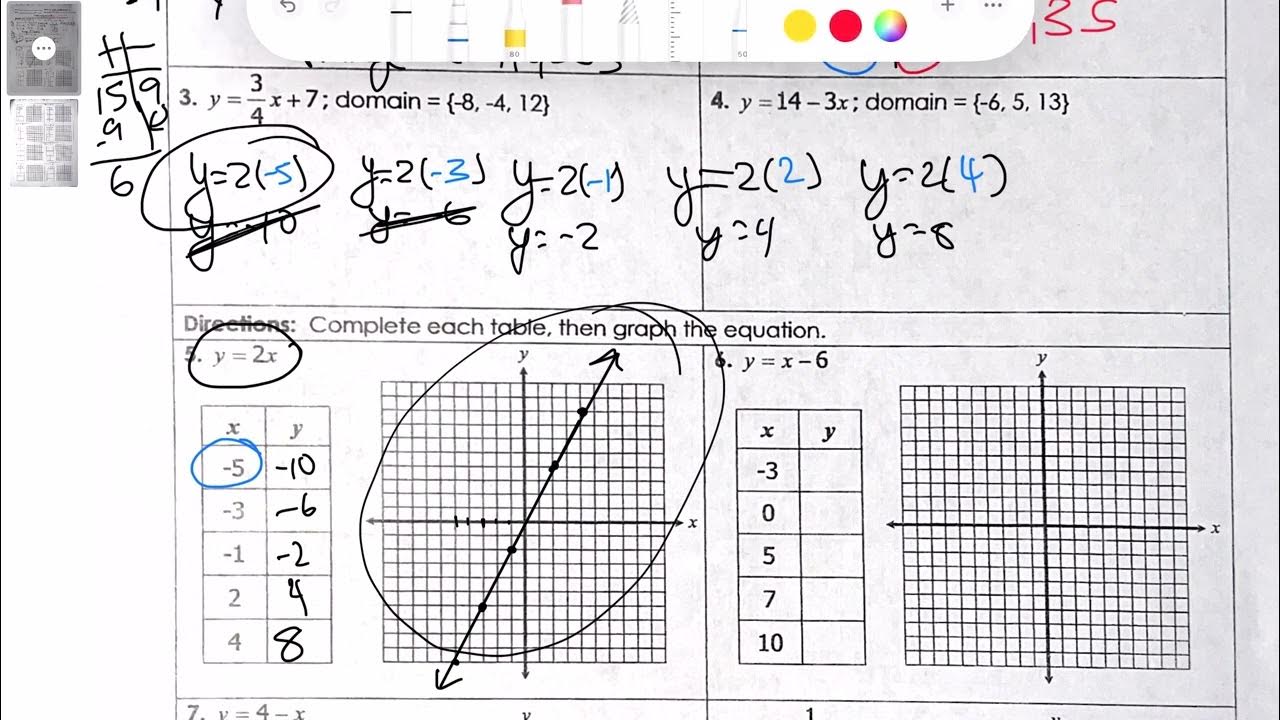 80
50
,35
15 9
-9
6
3. y = 3/4 x + 7 ; domain = {-8, -4, 12}
4. y = 14 – 3x ; domain = {-6, 5, 13}
y=2(-5) y=2(-3) y=2(-1) y=2(2) y=2(4)
y=-10 y=-6 y=-2 y=4 y=8
Directions: Complete each table, then graph the equation.
5. y = 2x
x y
-5 -10
-3 -6
-1 -2
2 4
4 8
y
x
6. y = x – 6
x y
-3
0
5
7
10
y
x
7. y = 4 – x
y
1